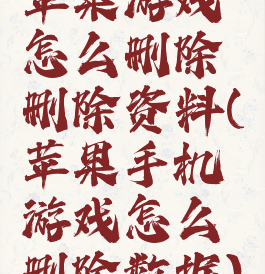 苹果游戏
怎么删除
删除资料(
苹果手机
游戏怎么
删除数据)